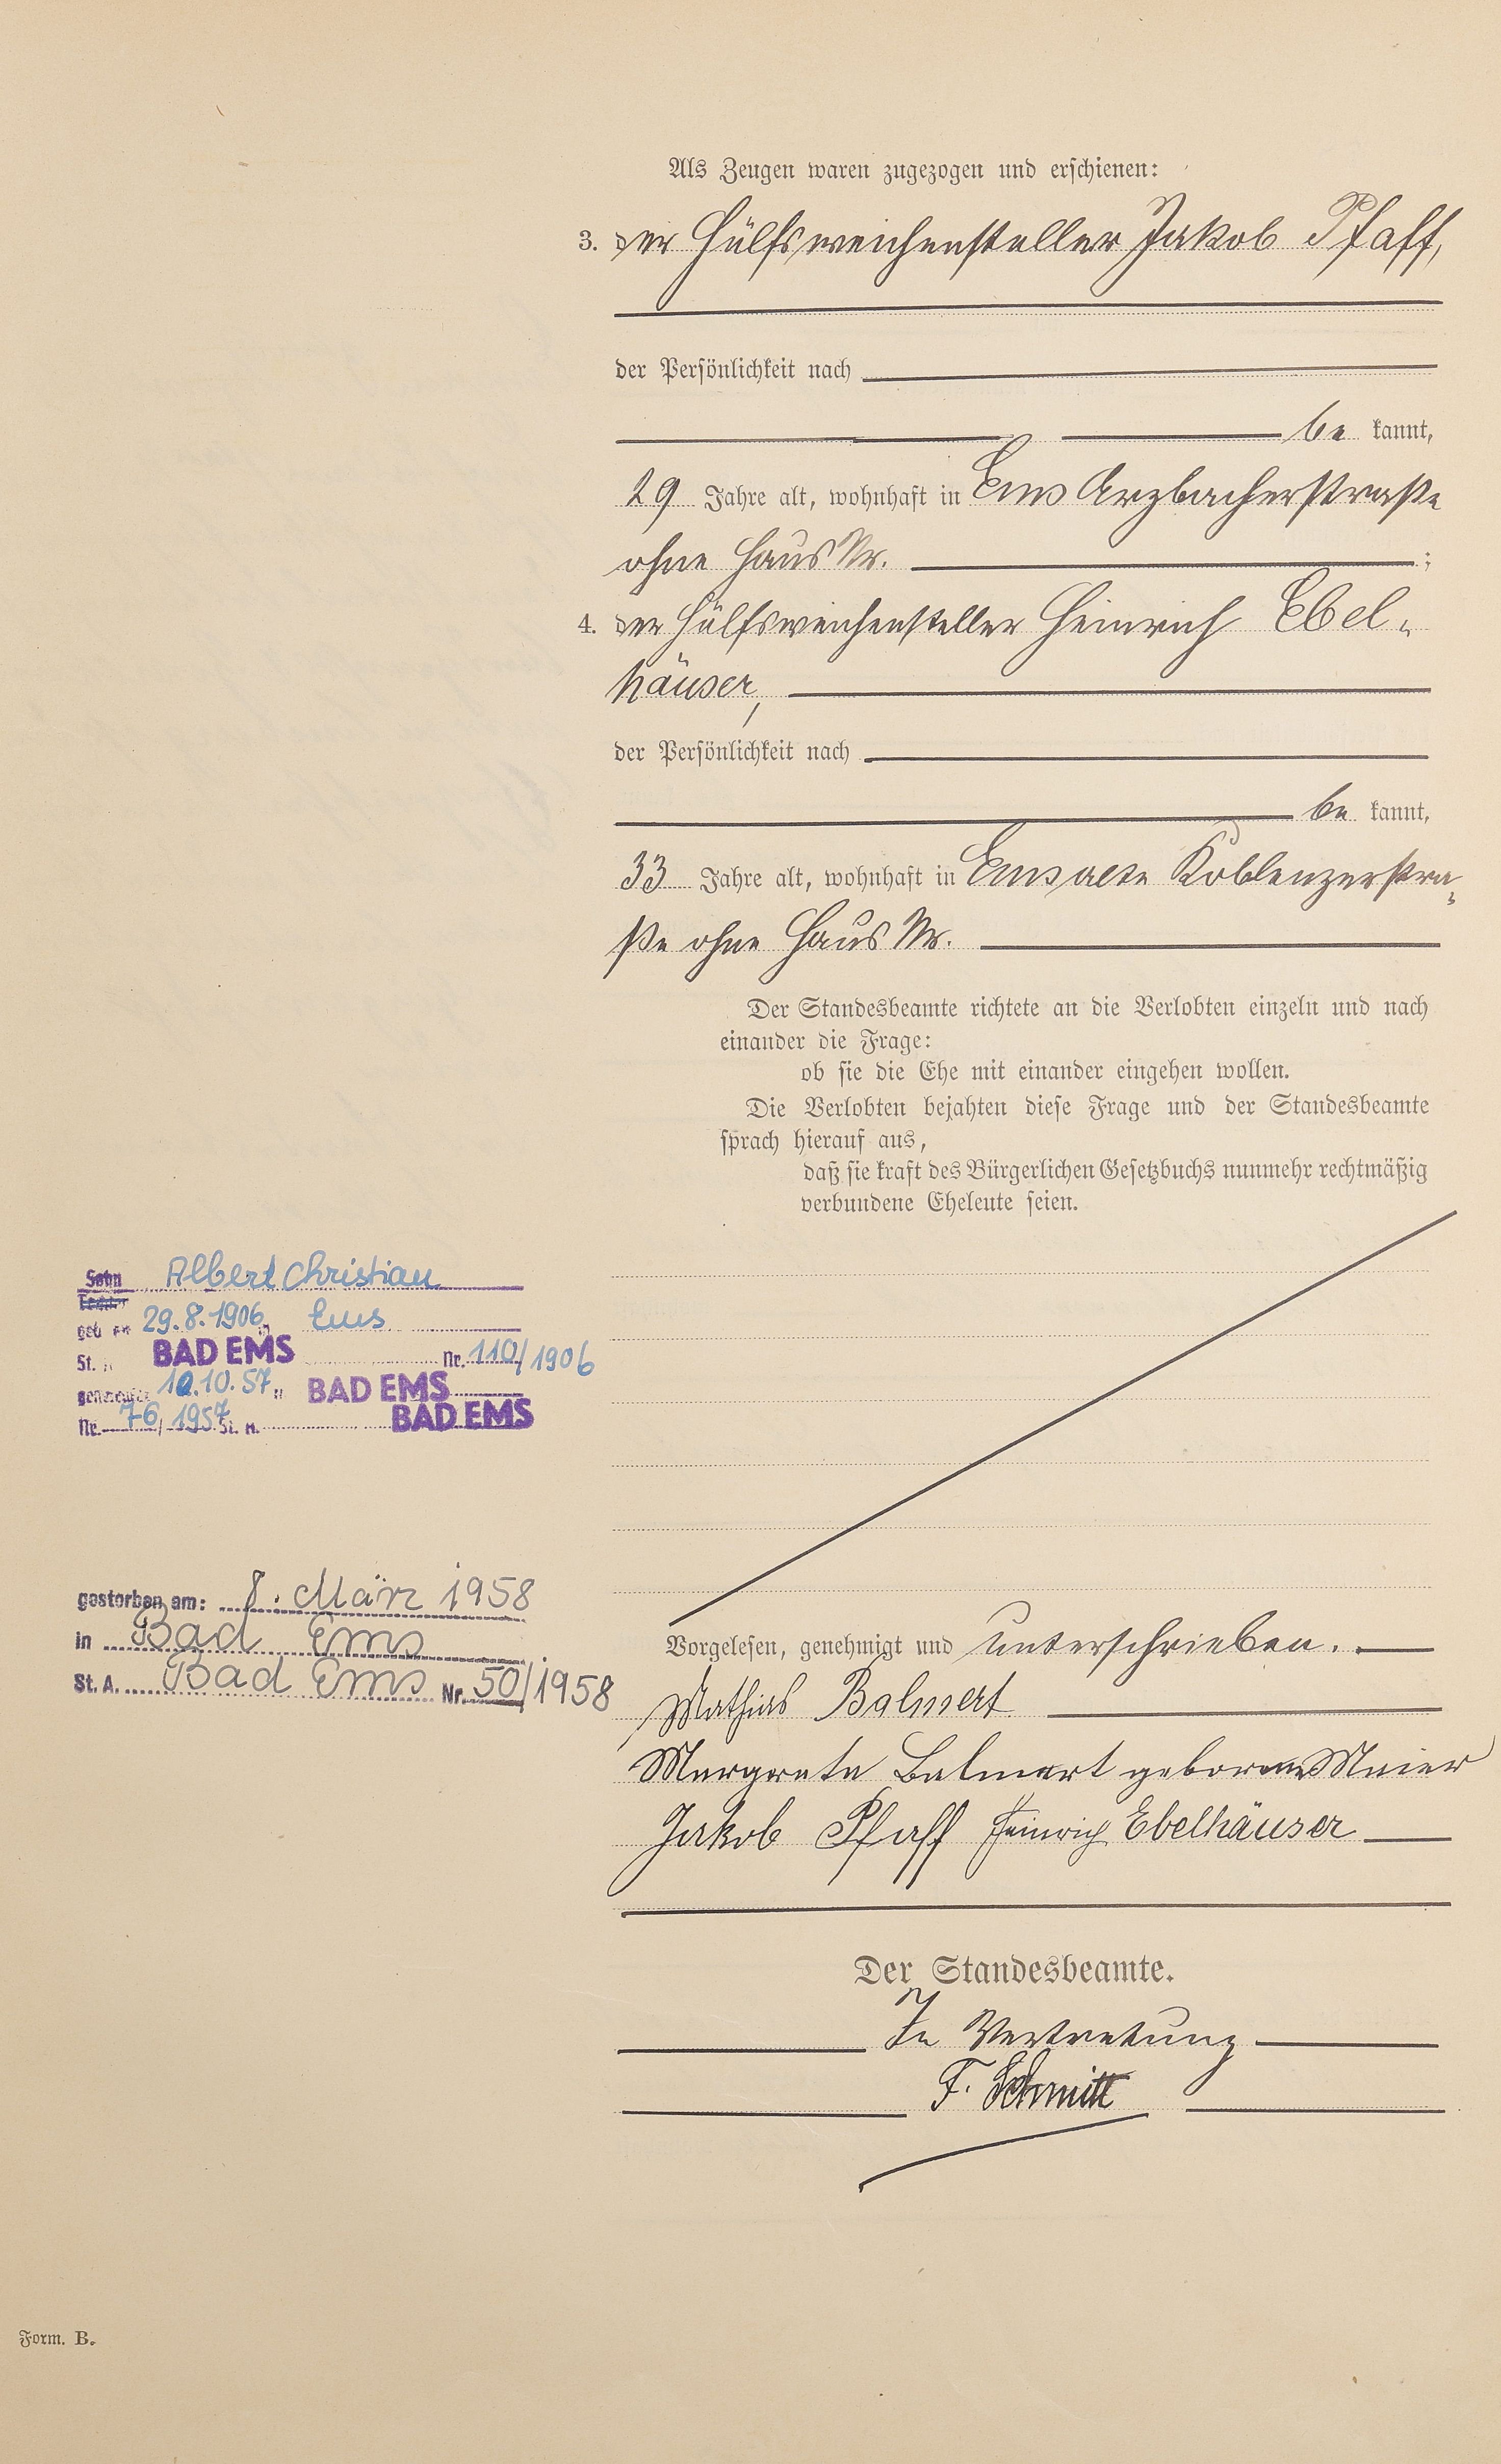 Als Zeugen waren zugezogen und erschienen:
3. der Hülfsweichensteller Jakob Pfaff,
der Persönlichkeit nach
be kannt,
29 Jahre alt, wohnhaft in Ems Arzbacherstraße
ohne Haus Nr. ;
4. der Hülfsweichensteller Heinrich Ebel-
häuser,
der Persönlichkeit nach
be kannt,
33 Jahre alt, wohnhaft in Ems alte Koblenzerstra-
ße ohne Haus Nr.
Der Standesbeamte richtete an die Verlobten einzeln und nach
einander die Frage:
ob sie die Ehe mit einander eingehen wollen.
Die Verlobten bejahten diese Frage und der Standesbeamte
sprach hierauf aus,
daß sie kraft des Bürgerlichen Gesetzbuchs nunmehr rechtmäßig
verbundene Eheleute seien.
Sohn Albert Christian
Tochter
geb. am 29.8.1906 in Ems
St. A. BAD EMS Nr. 110/1906
10.10.57 BAD EMS
Nr. 76/1957 St. A. BAD EMS
gestorben am: 8. März 1958
in Bad Ems
St. A. Bad Ems Nr. 50/1958
Vorgelesen, genehmigt und unterschrieben.
Mathias Balmert
Margreta Balmert geborene Meier
Jakob Pfaff Heinrich Ebelhäuser
Der Standesbeamte.
In Vertretung
F. Schmitt
Form. B.